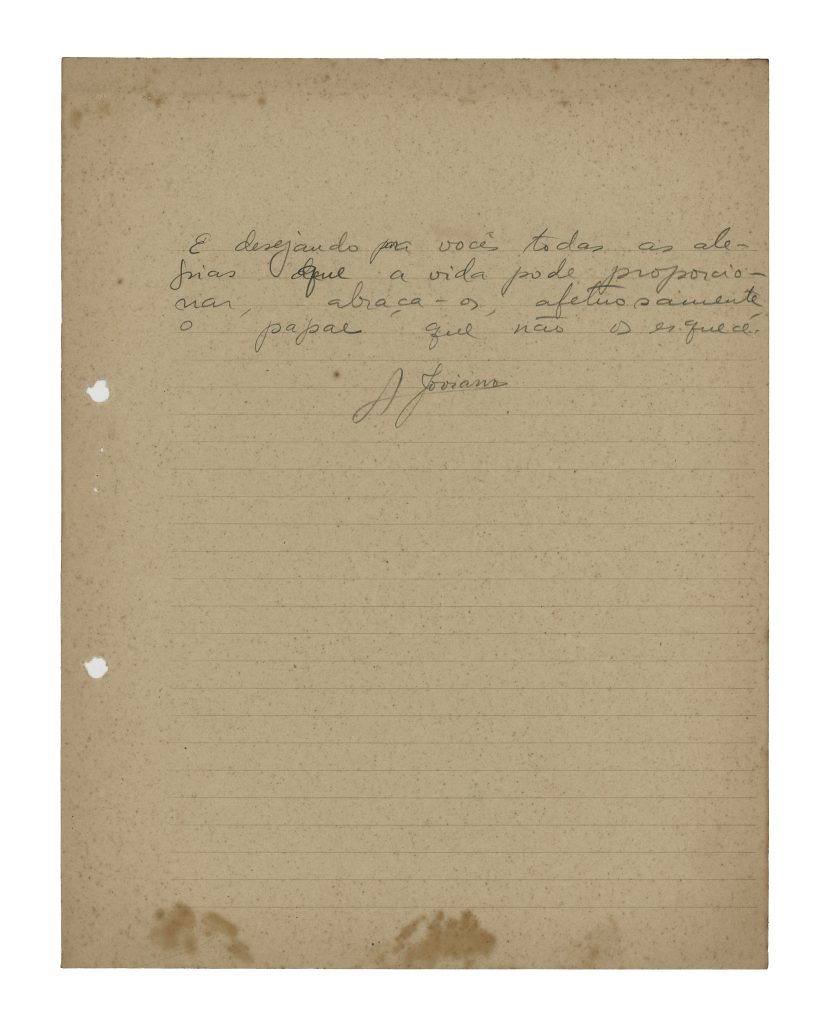 E desejando pra vocês todas as ale-
grias que a vida pode proporcio-
nar, abraça-os, afetuosamente
o papae que não os esquece.
A Joviano